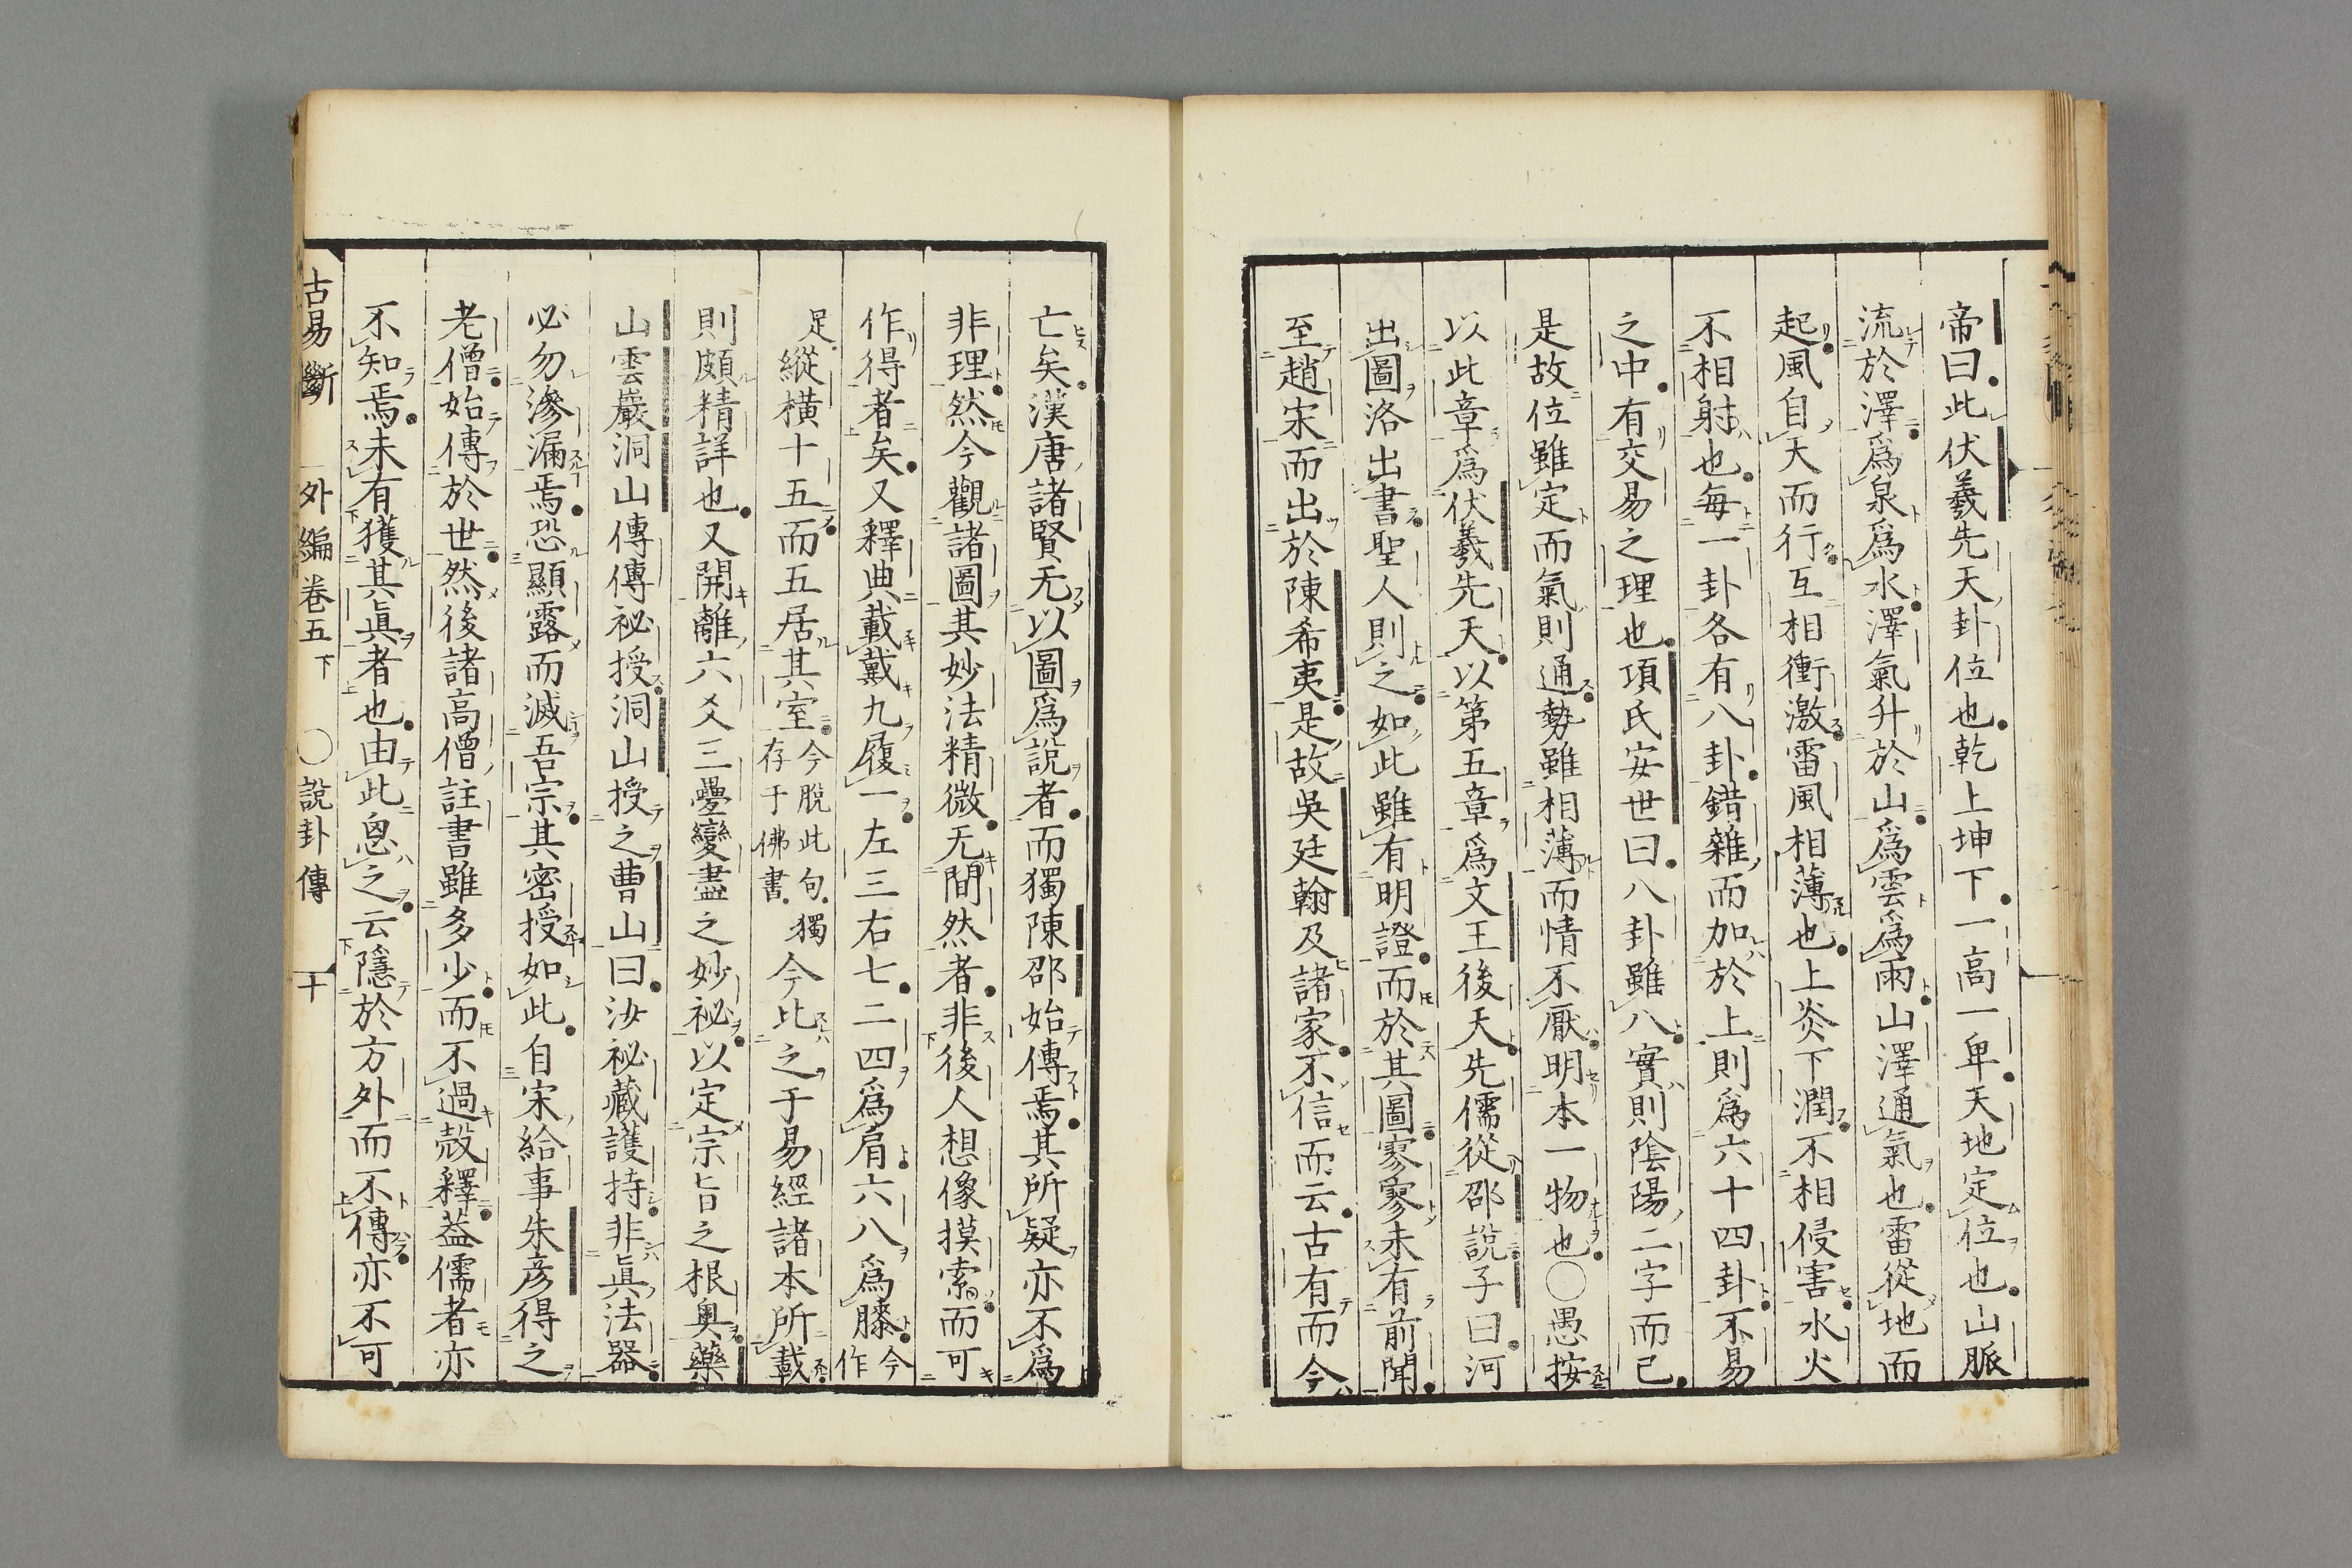 帝曰此伏羲先天卦位也乾上坤下一高一卑天地定位也山脈
流於澤爲泉爲水澤氣升於山爲雲爲雨山澤通氣也雷從地而
起風自天而行互相衝激雷風相薄也上炎下潤不相侵害水火
不相射也每一卦各有八卦錯雜而加於上則爲六十四卦不易
之中有交易之理也項氏安世曰八卦雖八實則陰陽二字而已
是故位雖定而氣則通勢雖相薄而情不厭明本一物也○愚按
以此章爲伏羲先天以第五章爲文王後天先儒從邵說子曰河
出圖洛出書聖人則之如此雖有明證而於其圖寥寥未有前聞
至趙宋而出於陳希夷是故吳廷翰及諸家不信而云古有而今
亡矣漢唐諸賢无以圖爲說者而獨陳邵始傳焉其所疑亦不爲
非理然今觀諸圖其妙法精微无間然者非後人想像摸索而可
作得者矣又釋典載戴九履一左三右七二四爲肩六八爲膝今作
足縱橫十五而五居其室今脫此句獨存于佛書今比之于易經諸本所載
則頗精詳也又開離六爻三疊變盡之妙祕以定宗旨之根奧藥
山雲巖洞山傳傳祕授洞山授之曹山曰汝祕藏護持非眞法器
必勿滲漏焉恐顯露而滅吾宗其密授如此自宋給事朱彦得之
老僧始傳於世然後諸高僧註書雖多少而不過殼釋葢儒者亦
不知焉未有獲其眞者也由此息之云隱於方外而不傳亦不可
古易斷　外編卷五下　○說卦傳　十